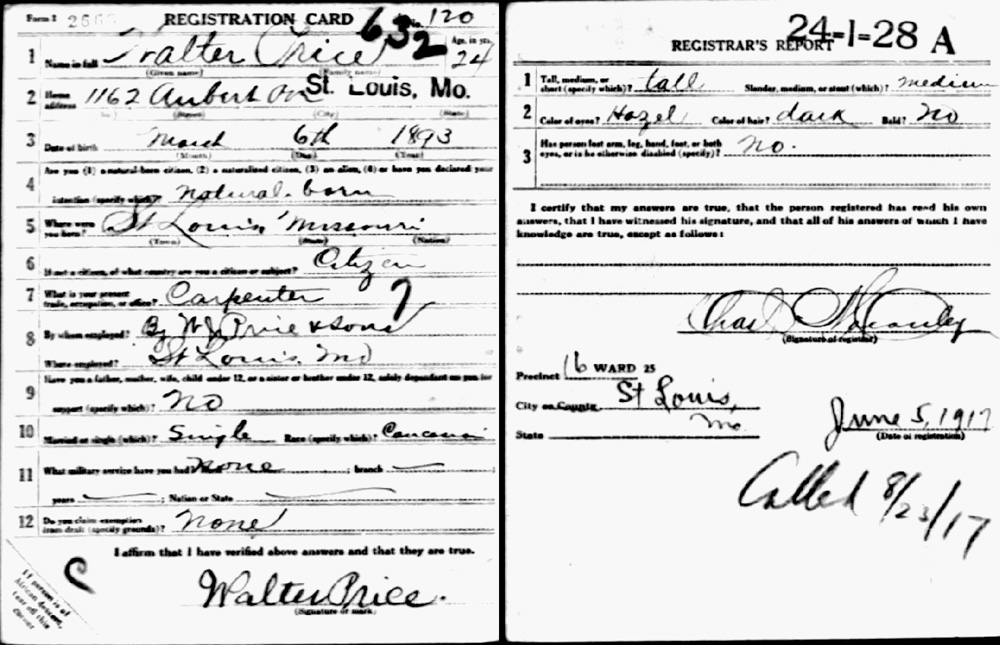 Form 1 REGISTRATION CARD 632 No. 120
1 Name in full Walter Price Age, in yrs. 24
(Given name) (Family name)
2 Home address 1162 Aubert St. Louis, Mo.
(No.) (Street) (City) (State)
3 Date of birth March 6th 1893
(Month) (Day) (Year)
Are you (1) a natural-born citizen, (2) a naturalized citizen, (3) an alien, (4) or have you declared your
4 intention (specify which)? Natural-born
5 Where were you born? St Louis, Missouri
(Town) (State) (Nation)
6 If not a citizen, of what country are you a citizen or subject? Citizen
7 What is your present trade, occupation, or office? Carpenter 7
8 By whom employed? By W J Price & Sons
Where employed? St Louis, Mo
Have you a father, mother, wife, child under 12, or a sister or brother under 12, solely dependent on you for
9 support (specify which)? No
10 Married or single (which)? Single Race (specify which)? Caucasian
11 What military service have you had? None ; branch
years ; Nation or State
12 Do you claim exemption from draft (specify grounds)? None
I affirm that I have verified above answers and that they are true.
C
Walter Price.
(Signature or mark)
If person is of
African descent,
tear off this
corner
24-1-28 A
REGISTRAR'S REPORT
1 Tall, medium, or short (specify which)? tall Slender, medium, or stout (which)? medium
2 Color of eyes? Hazel Color of hair? dark Bald? No
3 Has person lost arm, leg, hand, foot, or both eyes, or is he otherwise disabled (specify)? No.
I certify that my answers are true, that the person registered has read his own
answers, that I have witnessed his signature, and that all of his answers of which I have
knowledge are true, except as follows:
Chas
(Signature of registrar)
Precinct 16 WARD 25
City or County St Louis,
State Mo
June 5, 1917
(Date of registration)
Called 8/23/17